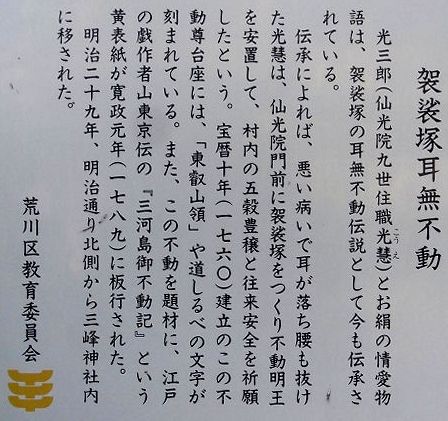 袈裟塚耳無不動
光三郎(仙光院九世住職光慧)とお絹の情愛物
こうえ
語は、袈裟塚の耳無不動伝説として今も伝承さ
れている。
伝承によれば、悪い病いで耳が落ち腰も抜け
た光慧は、仙光院門前に袈裟塚をつくり不動明王
を安置して、村内の五穀豊穣と往来安全を祈願
したという。宝暦十年(一七六〇)建立のこの不
動尊台座には、「東叡山領」や道しるべの文字が
刻まれている。また、この不動を題材に、江戸
の戯作者山東京伝の『三河島御不動記』という
黄表紙が寛政元年(一七八九)に板行された。
明治二十九年、明治通り北側から三峰神社内
に移された。
荒川区教育委員会